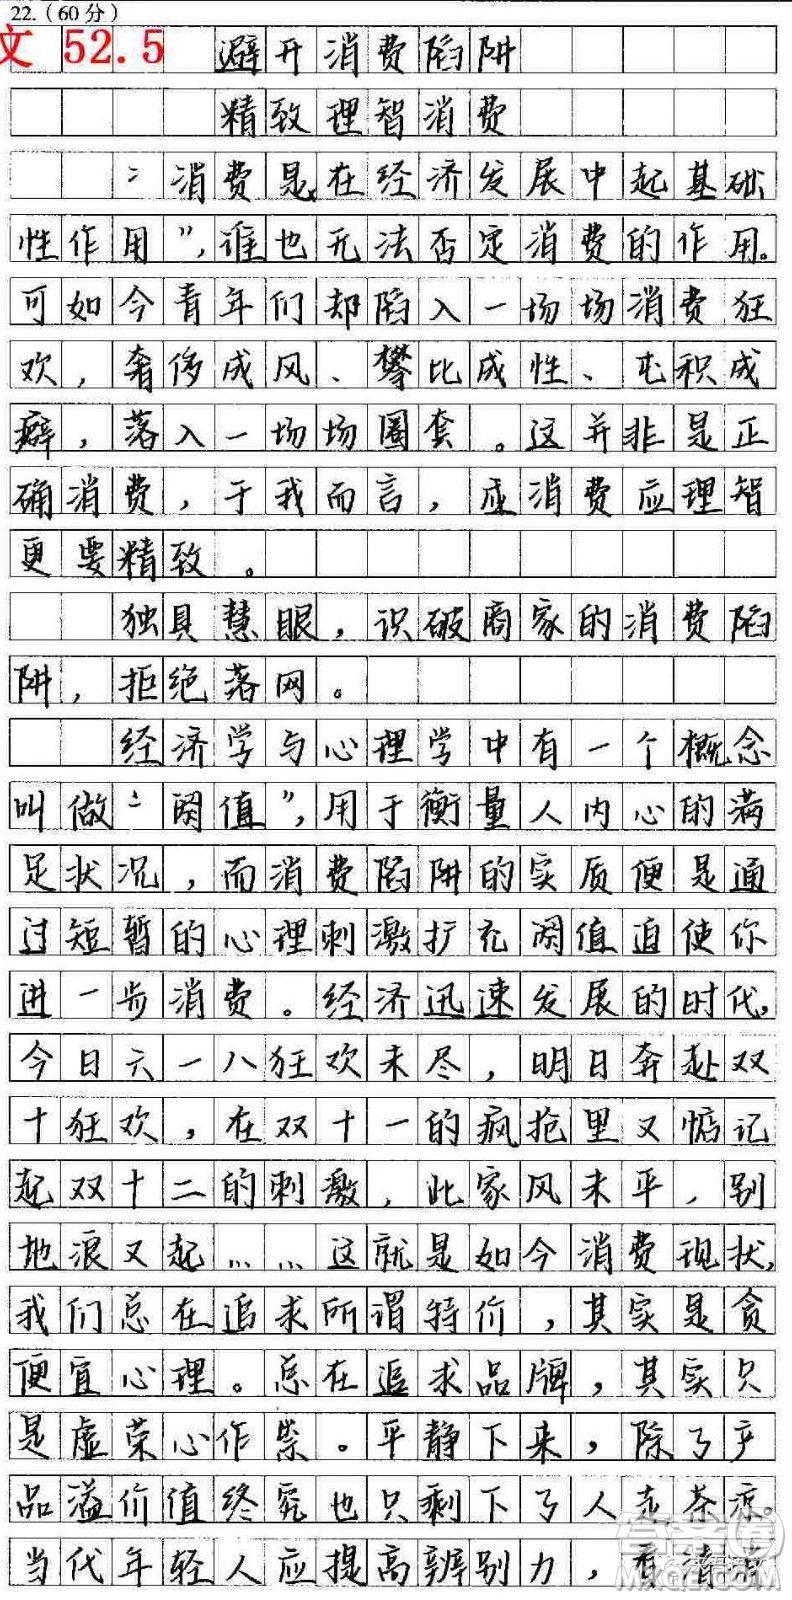 22.(60分)
文 52.5 避开消费陷阱
精致理智消费
“消费是在经济发展中起基础
性作用”,谁也无法否定消费的作用。
可如今青年们却陷入一场场消费狂
欢,奢侈成风、攀比成性、屯积成
癖,落入一场场圈套。这并非是正
确消费,于我而言,应消费应理智
更要精致。
独具慧眼,识破商家的消费陷
阱,拒绝落网。
经济学与心理学中有一个概念
叫做“阈值”,用于衡量人内心的满
足状况,而消费陷阱的实质便是通
过短暂的心理刺激扩充阈值迫使你
进一步消费。经济迅速发展的时代,
今日六一八狂欢未尽,明日奔赴双
十狂欢,在双十一的疯抢里又惦记
起双十二的刺激,此家风未平,别
地浪又起……这就是如今消费现状,
我们总在追求所谓特价,其实是贪
便宜心理。总在追求品牌,其实只
是虚荣心作祟。平静下来,除了产
品溢价值终究也只剩下了人走茶凉。
当代年轻人应提高辨别力,看清苗
答案圈
MXQE.COM